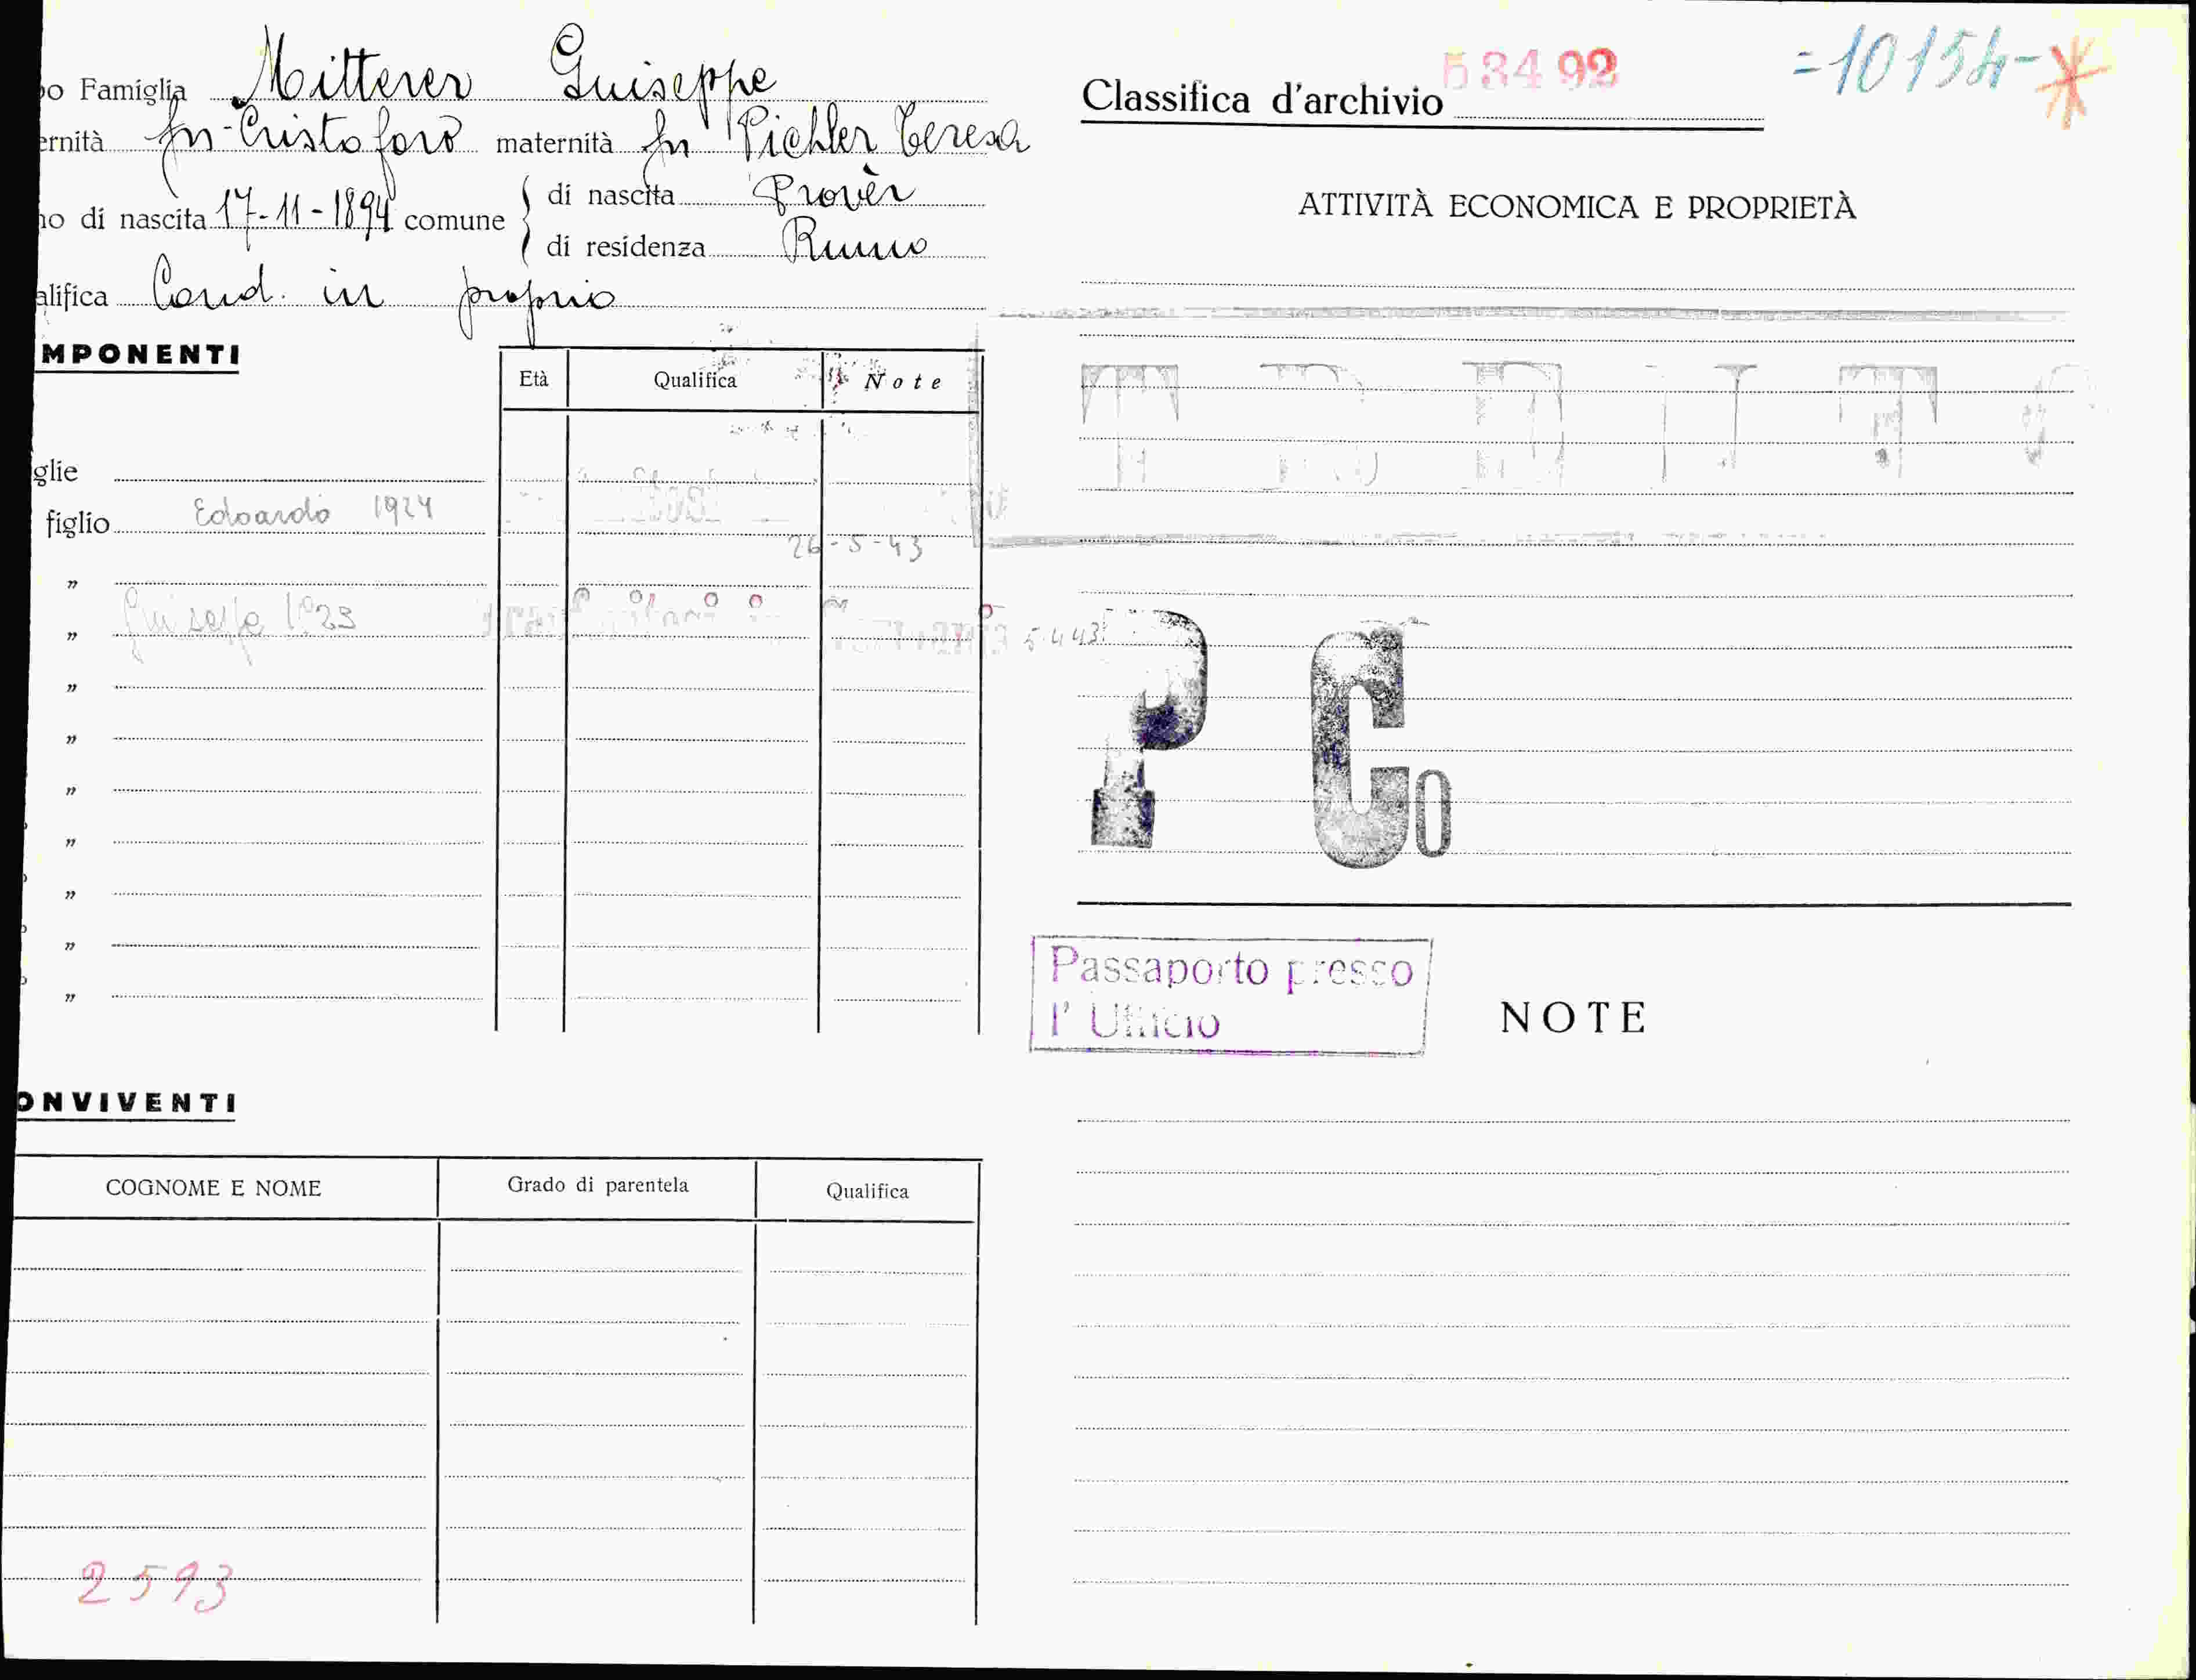 o Famiglia Mitterer Guiseppe
ernità fu Cristoforo maternità fu Pichler Teresa
no di nascita 17-11-1894 comune di nascita Provèr
di residenza Rumo
alifica Cond. in proprio
MPONENTI
Età Qualifica Note
glie
figlio Edoardo 1924
26-5-43
"
" Guiseppe 1923
5.4.43
"
"
"
"
"
"
"
ONVIVENTI
COGNOME E NOME Grado di parentela Qualifica
2593
53492
=10154-*
Classifica d'archivio
ATTIVITÀ ECONOMICA E PROPRIETÀ
P Co
Passaporto presso
l' Ufficio
NOTE